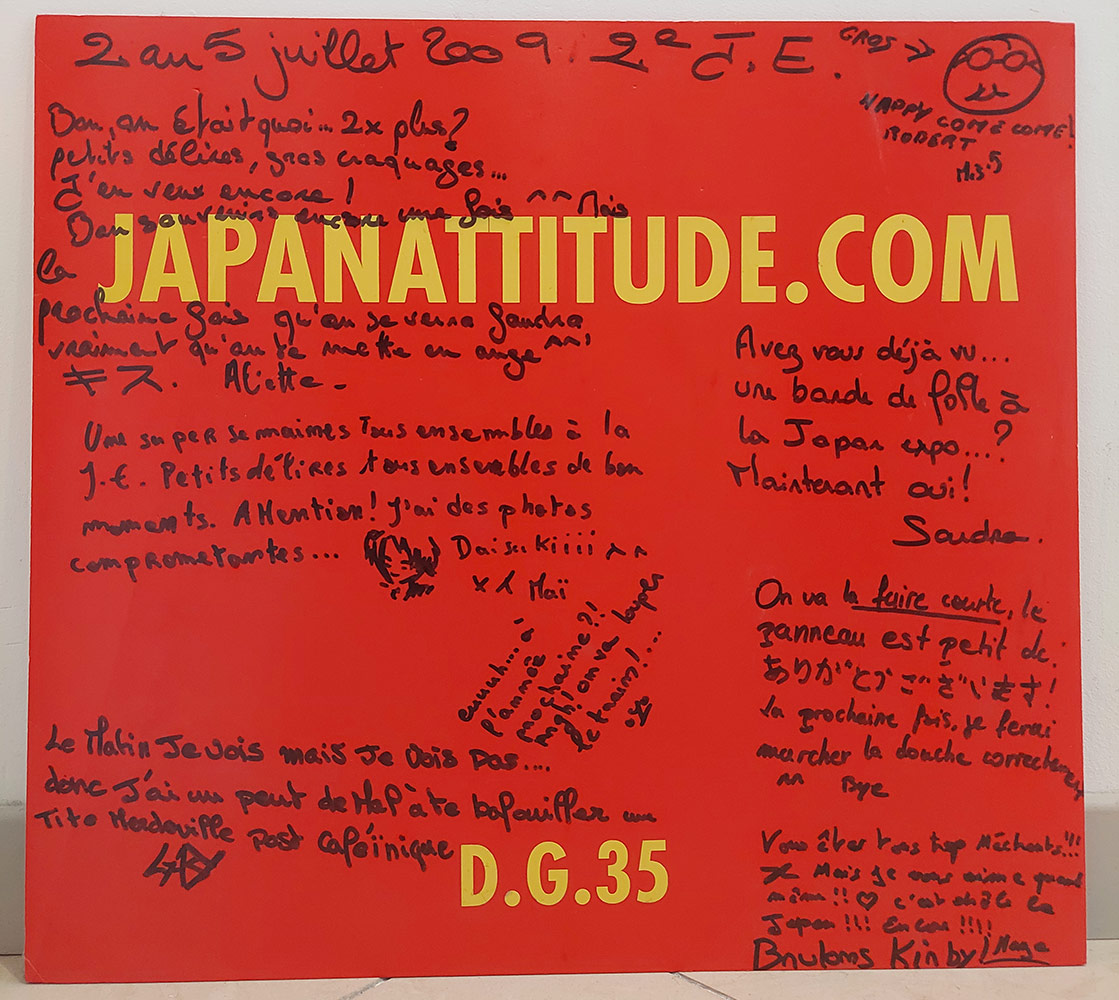 2 au 5 juillet 2009. 2e J.E.
GROS →
HAPPY COME COME!
ROBERT
M.S.5
Bon, on était quoi... 2x plus?
petits délires, gros craquages...
J'en veux encore!
Bon souvenirs encore une fois ^^ Mais
la
JAPANATTITUDE.COM
prochaine fois qu'on se verra Sandra
vraiment qu'on te mette en ange ^^'
キス. Aliette -
Une super semaines Tous ensembles à la
J.E. Petits délires tous ensembles de bon
moments. Attention! J'ai des photos
comprometantes...
Daisukiiii ^^
x 1 Maï
Avez vous déjà vu...
une bande de folle à
la Japan expo...?
Maintenant oui!
Sandra.
euuuh... à
l'année
prochaine?!
Argh! on va louper
le train!...
On va la faire courte, le
panneau est petit de.
ありがとうございます!
la prochaine fois, je ferai
marcher la douche correctement
^^ Bye
Le Matin Je vois mais Je Dois pas...
donc J'ai un peut de Mal à te bafouiller un
Tito Merdouille Post Caféïnique
D.G.35
Vous êtes tous trop Méchants!!!
Mais je vous aime quand
même!! ♡ c'est la
Japan!!! Encore!!!!
Brulons Kinby!